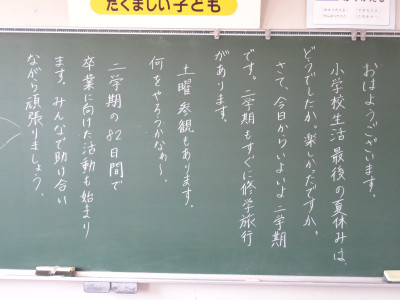 たくましい子ども
おはようございます。
小学校生活最後の夏休みは、
どうでしたか。楽しかったですか。
さて、今日からいよいよ二学期
です。二学期もすぐに修学旅行
があります。
土曜参観もあります。
何をやろうかなぁ〜。
二学期の82日間で
卒業に向けた活動も始まり
ます。みんなで助け合い
ながら頑張りましょう。